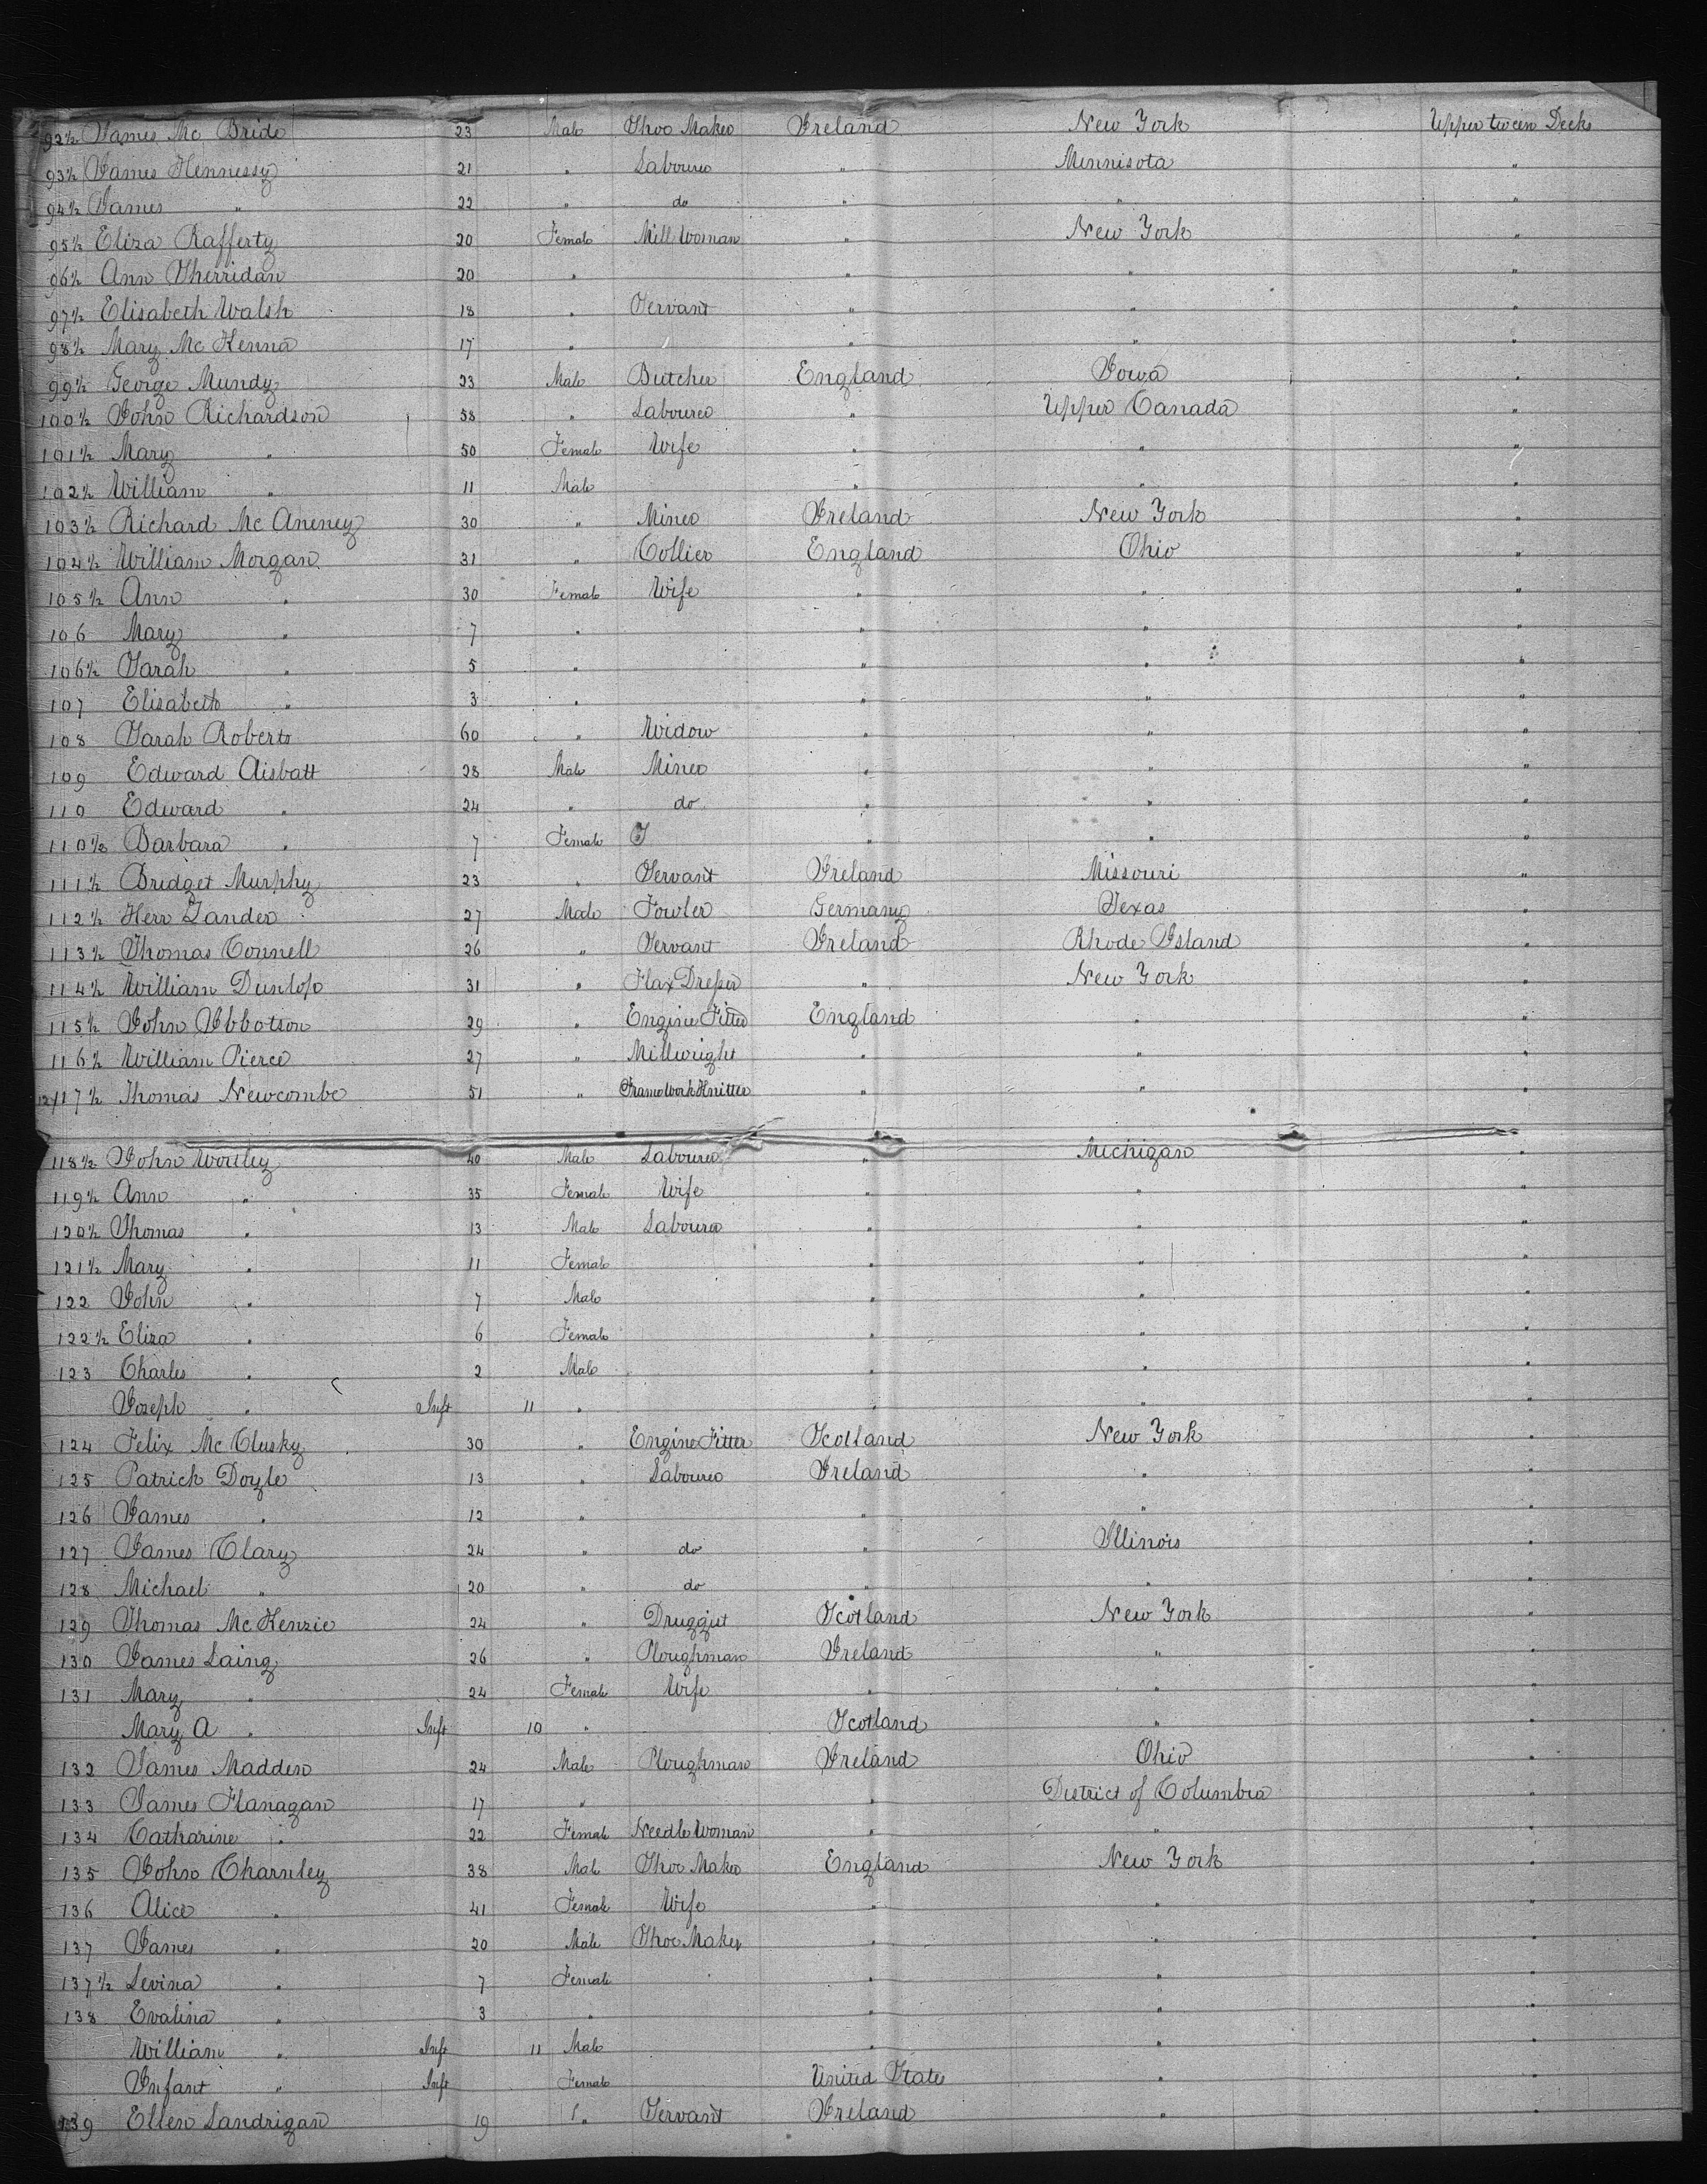 92½ James Mc Bride 23 Male Shoe Maker Ireland New York Upper tween Decks
93½ James Hennessy 21 " Labourer " Minnisota "
94½ James " 22 " do " " "
95½ Eliza Rafferty 20 Female Mill Woman " New York "
96½ Ann Sherridan 20 " " " "
97½ Elisabeth Walsh 18 " Servant " " "
98½ Mary Mc Kenna 17 " " " " "
99½ George Mundy 23 Male Butcher England Iowa "
100½ John Richardson 58 " Labourer " Upper Canada "
101½ Mary " 50 Female Wife " " "
102½ William " 11 Male " " "
103½ Richard Mc Aneney 30 " Miner Ireland New York "
104½ William Morgan 31 " Collier England Ohio "
105½ Ann " 30 Female Wife " " "
106 Mary " 7 " " " "
106½ Sarah " 5 " " " "
107 Elisabeth " 3 " " " "
108 Sarah Roberts 60 " Widow " " "
109 Edward Aisbatt 28 Male Miner " " "
110 Edward " 24 " do " " "
110½ Barbara " 7 Female S " " "
111½ Bridget Murphy 23 " Servant Ireland Missouri "
112½ Herr Zander 27 Male Fowler Germany Texas "
113½ Thomas Connell 26 " Servant Ireland Rhode Island "
114½ William Dunlop 31 " Flax Dresser " New York "
115½ John Ibbotson 29 " Engine Fitter England " "
116½ William Pierce 27 " Millwright " " "
117½ Thomas Newcombe 51 " Frame Work Knitter " " "
118½ John Worley 40 Male Labourer " Michigan "
119½ Ann " 35 Female Wife " " "
120½ Thomas " 13 Male Labourer " " "
121½ Mary " 11 Female " " "
122 John " 7 Male " " "
122½ Eliza " 6 Female " " "
123 Charles " 2 Male " " "
Joseph " Inft 11 " " " "
124 Felix Mc Clusky 30 " Engine Fitter Scotland New York "
125 Patrick Doyle 13 " Labourer Ireland " "
126 James " 12 " " " "
127 James Clary 24 " do " Illinois "
128 Michael " 20 " do " " "
129 Thomas Mc Kenzie 24 " Druggist Scotland New York "
130 James Laing 26 " Ploughman Ireland " "
131 Mary " 24 Female Wife " " "
Mary A " Inft 10 " Scotland " "
132 James Madden 24 Male Ploughman Ireland Ohio "
133 James Flanagan 17 " " District of Columbia "
134 Catharine " 22 Female Needle Woman " " "
135 John Charnley 38 Male Shoe Maker England New York "
136 Alice " 41 Female Wife " " "
137 James " 20 Male Shoe Maker " " "
137½ Levina " 7 Female " " "
138 Evalina " 3 " " " "
William " Inft 11 Male " " "
Infant " Inft Female United States " "
139 Ellen Landrigan 19 " Servant Ireland " "